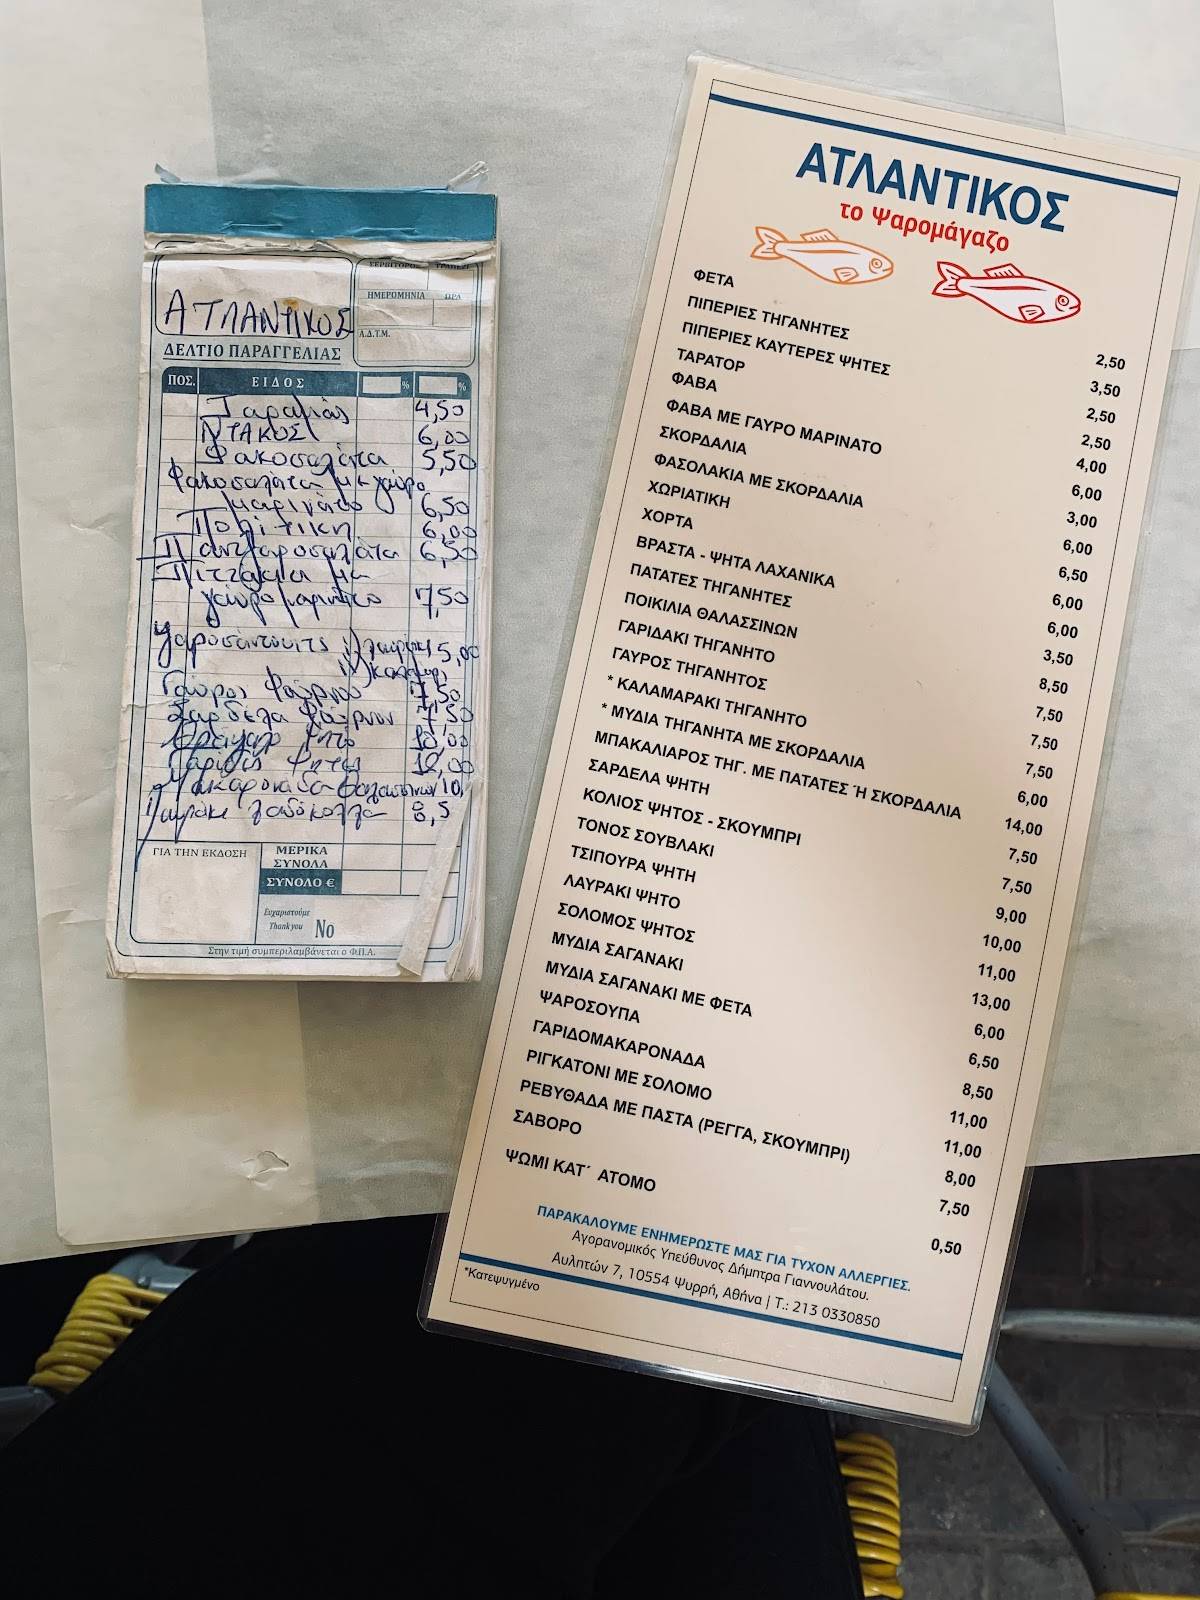 ΣΕΡΒΙΤΟΡΟΣ ΤΡΑΠΕΖΙ
ΗΜΕΡΟΜΗΝΙΑ ΩΡΑ
Λ.Δ.Τ.Μ.
ΑΤΛΑΝΤΙΚΟΣ
ΔΕΛΤΙΟ ΠΑΡΑΓΓΕΛΙΑΣ
ΠΟΣ. ΕΙΔΟΣ % %
Ταραμάς 4,50
ΝΤΑΚΟΣ 6,00
Φακοσαλάτα 5,50
Φακοσαλάτα με γαύρο
μαρινάτο 6,50
Πολίτικη 6,00
Παντζαροσαλάτα 6,50
Πιτζάκια με
γαύρο μαρινάτο 7,50
Ψαροσάντουιτς 5,00
Γαύρος Φούρνου 7,50
Σαρδέλα Φούρνου 7,50
ψητό 10,00
Γαρίδες ψητές 12,00
Μακαρονάδα θαλασσινών 10
λαδόκολλα 8,5
ΓΙΑ ΤΗΝ ΕΚΔΟΣΗ
ΜΕΡΙΚΑ
ΣΥΝΟΛΑ
ΣΥΝΟΛΟ €
Ευχαριστούμε
Thank you No
Στην τιμή συμπεριλαμβάνεται ο Φ.Π.Α.
ΑΤΛΑΝΤΙΚΟΣ
το Ψαρομάγαζο
ΦΕΤΑ 2,50
ΠΙΠΕΡΙΕΣ ΤΗΓΑΝΗΤΕΣ 3,50
ΠΙΠΕΡΙΕΣ ΚΑΥΤΕΡΕΣ ΨΗΤΕΣ 2,50
ΤΑΡΑΤΟΡ 2,50
ΦΑΒΑ 4,00
ΦΑΒΑ ΜΕ ΓΑΥΡΟ ΜΑΡΙΝΑΤΟ 6,00
ΣΚΟΡΔΑΛΙΑ 3,00
ΦΑΣΟΛΑΚΙΑ ΜΕ ΣΚΟΡΔΑΛΙΑ 6,00
ΧΩΡΙΑΤΙΚΗ 6,50
ΧΟΡΤΑ 6,00
ΒΡΑΣΤΑ - ΨΗΤΑ ΛΑΧΑΝΙΚΑ 6,00
ΠΑΤΑΤΕΣ ΤΗΓΑΝΗΤΕΣ 3,50
ΠΟΙΚΙΛΙΑ ΘΑΛΑΣΣΙΝΩΝ 8,50
ΓΑΡΙΔΑΚΙ ΤΗΓΑΝΗΤΟ 7,50
ΓΑΥΡΟΣ ΤΗΓΑΝΗΤΟΣ 7,50
* ΚΑΛΑΜΑΡΑΚΙ ΤΗΓΑΝΗΤΟ 7,50
* ΜΥΔΙΑ ΤΗΓΑΝΗΤΑ ΜΕ ΣΚΟΡΔΑΛΙΑ 6,00
ΜΠΑΚΑΛΙΑΡΟΣ ΤΗΓ. ΜΕ ΠΑΤΑΤΕΣ Ή ΣΚΟΡΔΑΛΙΑ 14,00
ΣΑΡΔΕΛΑ ΨΗΤΗ 7,50
ΚΟΛΙΟΣ ΨΗΤΟΣ - ΣΚΟΥΜΠΡΙ 7,50
ΤΟΝΟΣ ΣΟΥΒΛΑΚΙ 9,00
ΤΣΙΠΟΥΡΑ ΨΗΤΗ 10,00
ΛΑΥΡΑΚΙ ΨΗΤΟ 11,00
ΣΟΛΟΜΟΣ ΨΗΤΟΣ 13,00
ΜΥΔΙΑ ΣΑΓΑΝΑΚΙ 6,00
ΜΥΔΙΑ ΣΑΓΑΝΑΚΙ ΜΕ ΦΕΤΑ 6,50
ΨΑΡΟΣΟΥΠΑ 8,50
ΓΑΡΙΔΟΜΑΚΑΡΟΝΑΔΑ 11,00
ΡΙΓΚΑΤΟΝΙ ΜΕ ΣΟΛΟΜΟ 11,00
ΡΕΒΥΘΑΔΑ ΜΕ ΠΑΣΤΑ (ΡΕΓΓΑ, ΣΚΟΥΜΠΡΙ) 8,00
ΣΑΒΟΡΟ 7,50
ΨΩΜΙ ΚΑΤ΄ ΑΤΟΜΟ 0,50
ΠΑΡΑΚΑΛΟΥΜΕ ΕΝΗΜΕΡΩΣΤΕ ΜΑΣ ΓΙΑ ΤΥΧΟΝ ΑΛΛΕΡΓΙΕΣ.
Αγορανομικός Υπεύθυνος Δήμητρα Γιαννουλάτου.
Αυλητών 7, 10554 Ψυρρή, Αθήνα | Τ.: 213 0330850
*Κατεψυγμένο